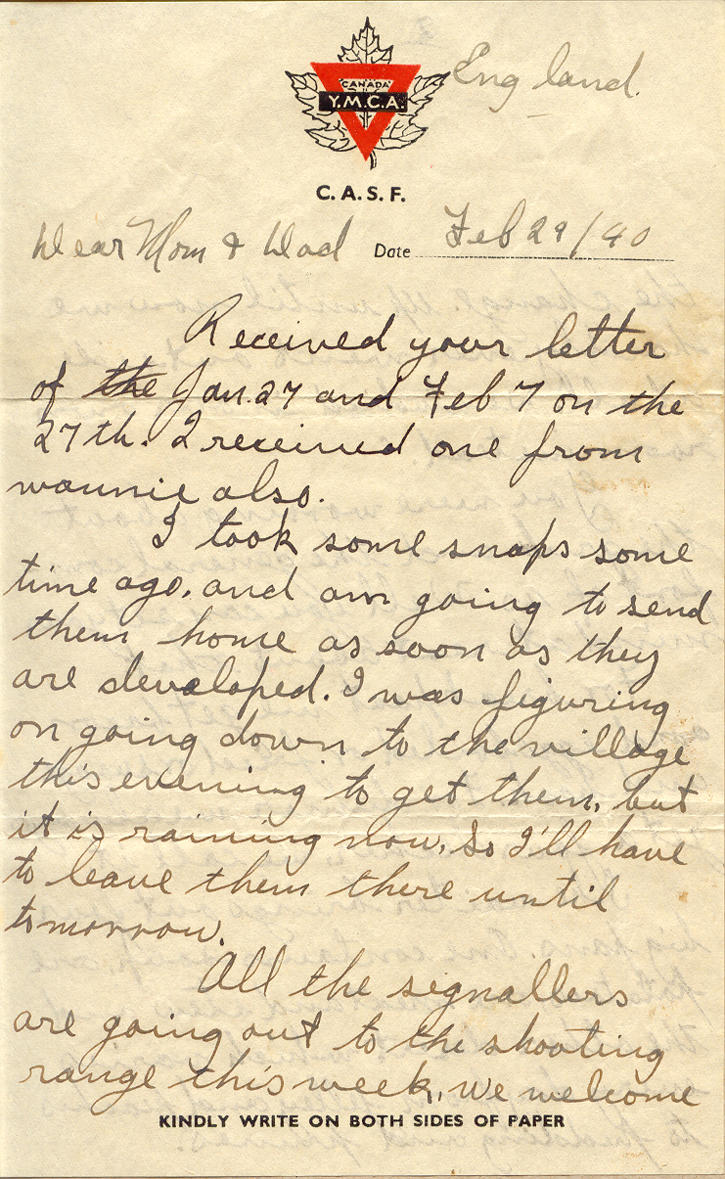 England.
CANADA
Y.M.C.A.
C.A.S.F.
Dear Mom & Dad Date Feb 29/40
Received your letter
of the Jan. 27 and Feb 7 on the
27th. I received one from
waunie also.
I took some snaps some
time ago, and am going to send
them home as soon as they
are developed. I was figuring
on going down to the village
this evening to get them, but
it is raining now, so I'll have
to leave them there until
tomorrow.
All the signallers
are going out to the shooting
range this week, we welcome
KINDLY WRITE ON BOTH SIDES OF PAPER